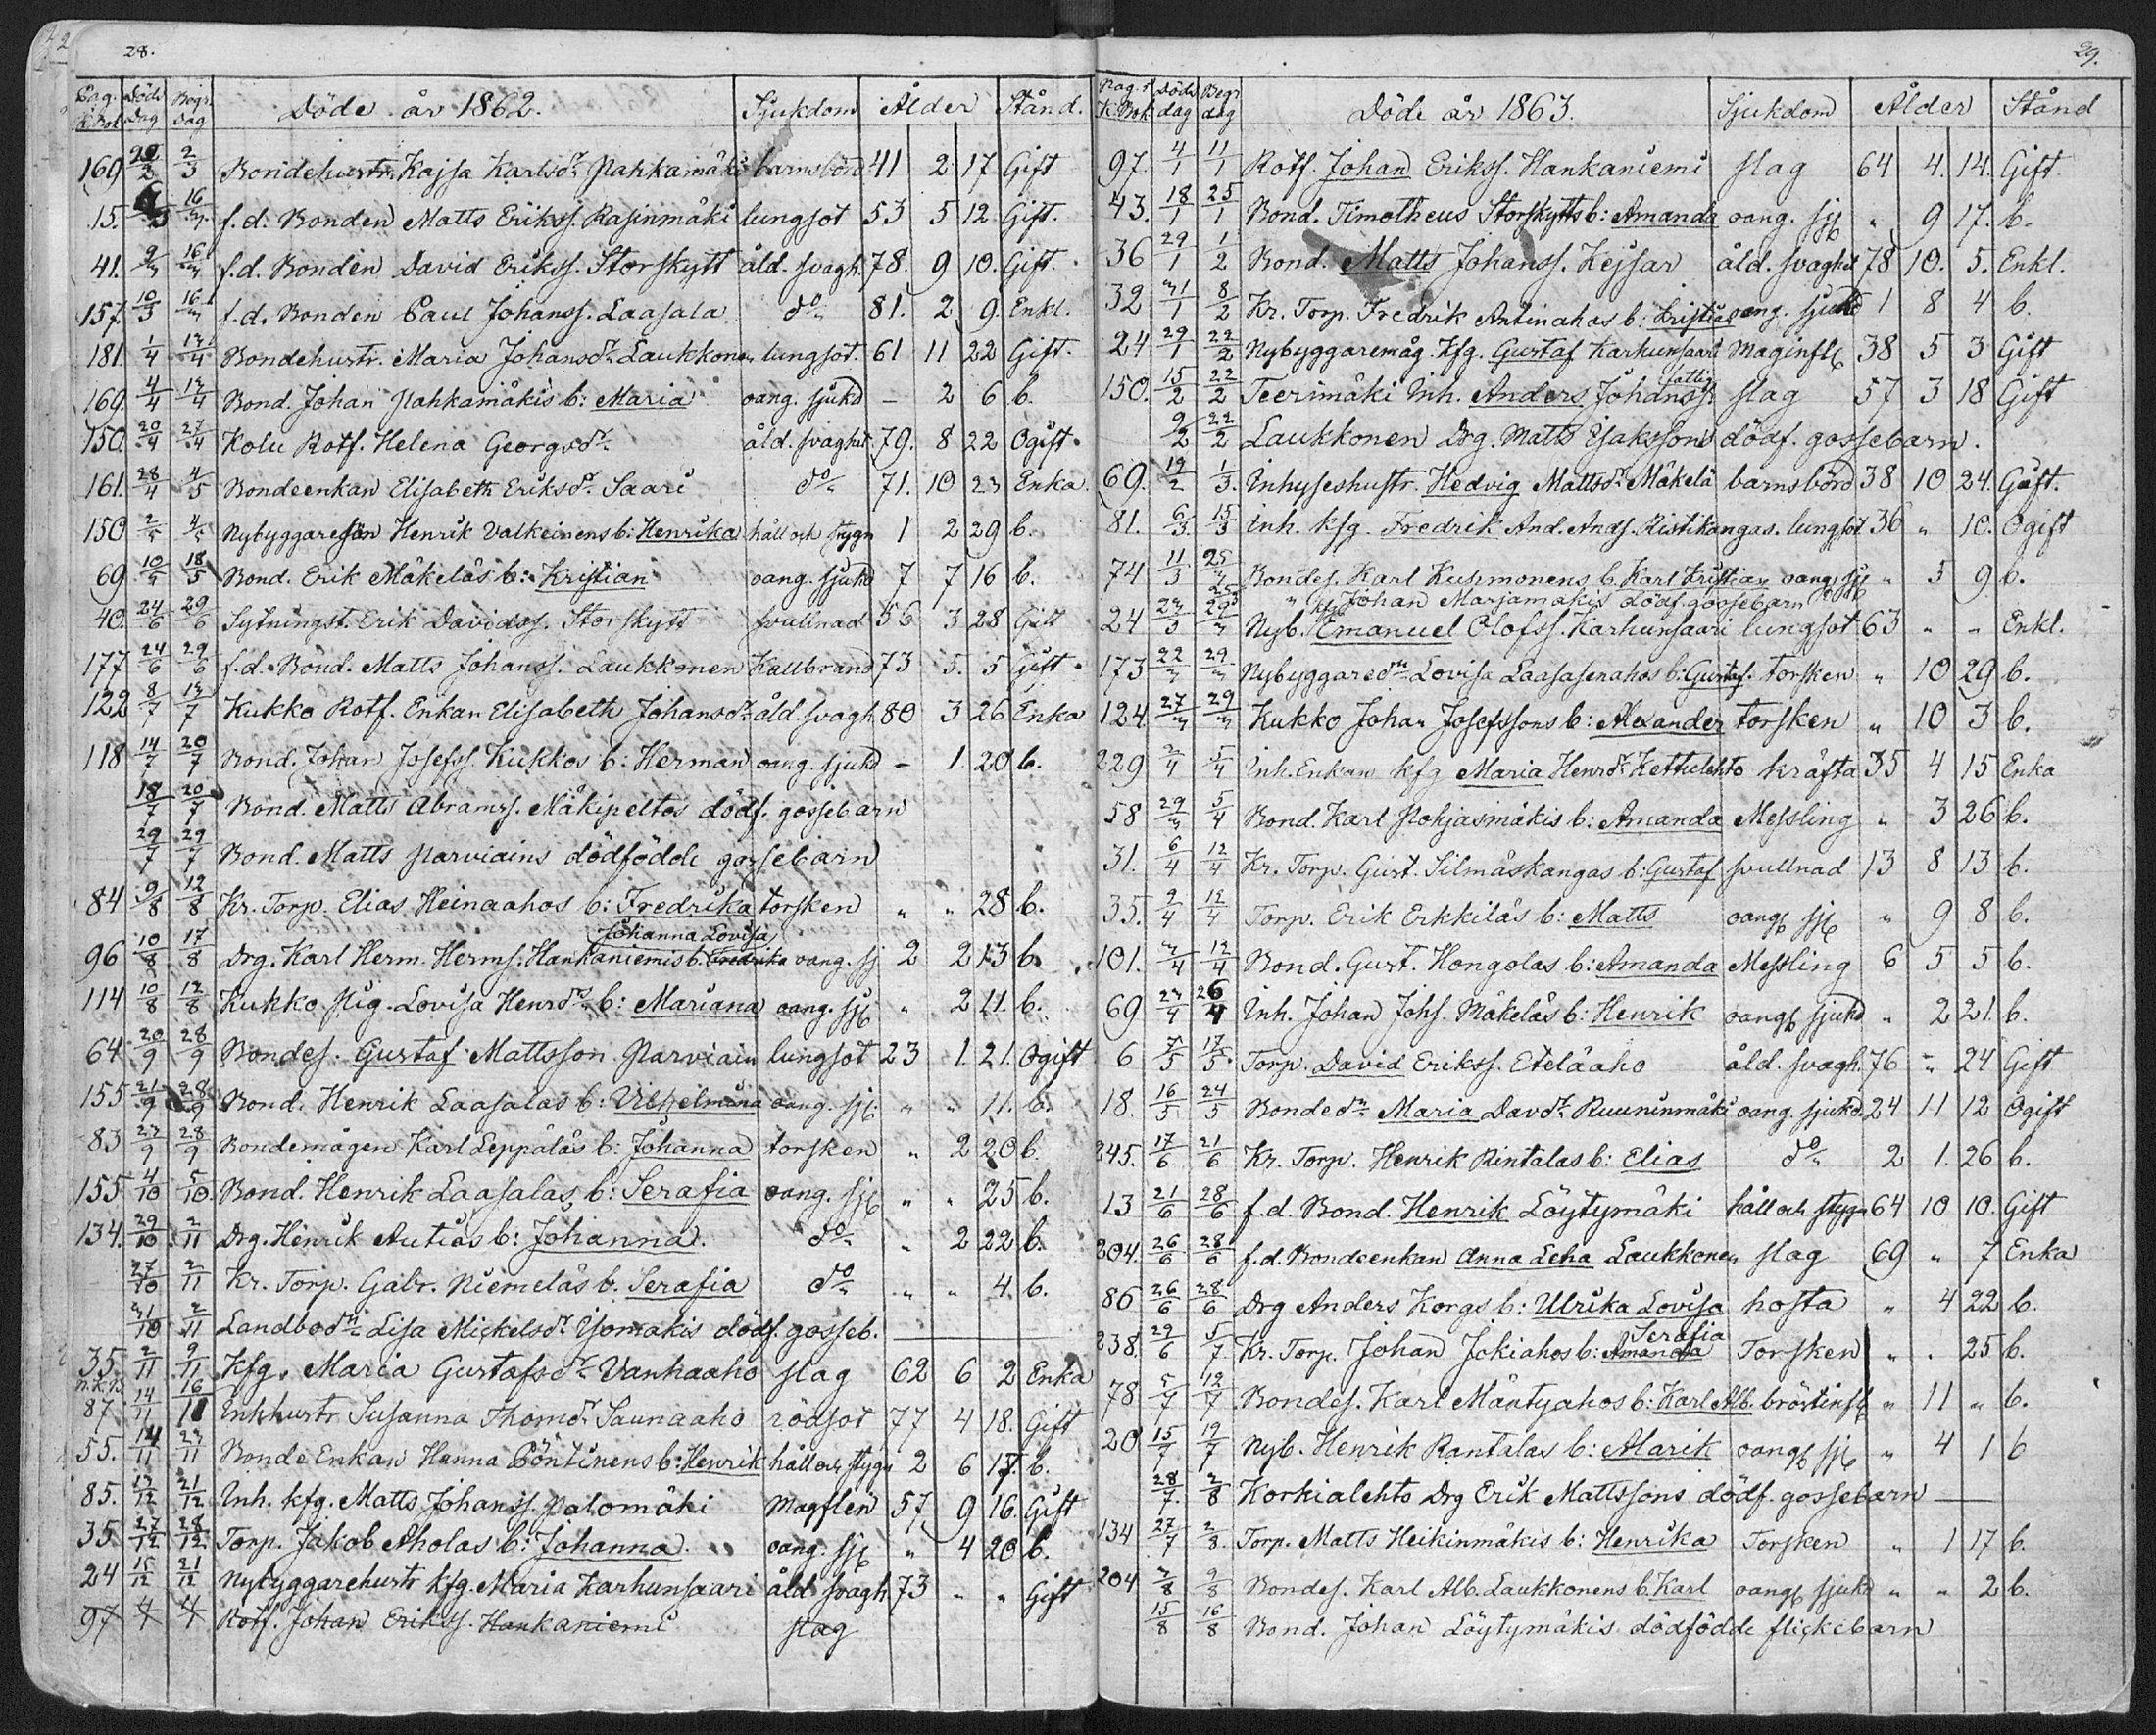 28.
Pag. K.Bok Döde dag Begr. dag Döde år 1862. Sjukdom Ålder Stånd.
169 2/3 Bondehustr. Kajsa Karlsdr Pahkamäki barnsbörd 41 2 17 Gift
15. 16/3 f.d. Bonden Matts Erikss. Rasinmäki lungsot 53 5 12. Gift.
41. 9/3 16/3 f.d. Bonden David Erikss. Storskytt åld. svagh. 78. 9 10. Gift.
157. 10/3 16/3 f.d. Bonden Paul Johanss. Laasala do 81. 2 9. Enkl.
181. 1/4 13/4 Bondehustr. Maria Johansdr Laukkonen lungsot. 61 11 22 Gift.
169. 4/4 13/4 Bond. Johan Pahkamäkis b: Maria oang. sjukd – 2 6 b.
150. 20/4 27/4 Kolu Rotf. Helena Georgsdr åld. svaghet 79. 8 22 Ogift.
161. 28/4 4/5 Bondeenkan Elisabeth Eriksdr Saari do 71. 10 23 Enka.
150 2/5 4/5 Nybyggareson Henrik Valkeinens b: Henrika håll och stygn 1 2 29 b.
69 10/5 18/5 Bond. Erik Mäkeläs b: Kristian oang. sjukd 7 7 16 b.
40. 24/6 29/6 Sytningst. Erik Davidss. Storskytt svullnad 56 3 28 Gift
177 24/6 29/6 f.d. Bond. Matts Johanss. Laukkonen Kallbrand 73 5. 5 Gift.
122 8/7 13/7 Kukko Rotf. Enkan Elisabeth Johansdr åld. svagh 80 3 26 Enka
118 14/7 20/7 Bond. Johan Josefss. Kukkos b: Herman oang. sjukd – 1. 20 b.
18/7 20/7 Bond. Matts Abramss. Mäkipeltos dödf. gossebarn
29/7 29/7 Bond. Matts Parviains dödfödde gossebarn
84 9/8 12/8 Kr. Torp. Elias Heinaahos b: Fredrika torsken " " 28 b.
Johanna Lovisa
96 10/8 17/8 Drg. Karl Herm. Herms. Hankaniemis b. Fredrika oang. sj 2 2 13 b.
114 10/8 12/8 Kukko Pig. Lovisa Henrdrs b: Mariana oang. sj " 2 11. b.
64 20/9 28/9 Bondes. Gustaf Mattsson Parviain lungsot 23 1. 21. Ogift
155 21/9 28/9 Bond. Henrik Laasalas b: Vilhelmina oang. sj " " 11. b.
83 23/9 28/9 Bondemågen Karl Leppäläs b: Johanna torsken " 2 20 b.
155 4/10 5/10. Bond. Henrik Laasalas b: Serafia oang. sj " " 25 b.
134. 29/10 2/11 Drg. Henrik Autiös b: Johanna. do " 2 22 b.
27/10 2/11 Kr. Torp. Gabr. Niemeläs b. Serafia do " " 4. b.
31/10 2/11 Landbodn Lisa Mickelsdr Yömäkis dödf. gosseb.
35. 2/11 9/11 Kfg. Maria Gustafsdr Vanhaaho slag 62 6 2 Enka
n.K.B.
87. 14/11 16/11 Enkhustr Susanna Thomdr Saunaaho rödsot 77 4 18. Gift
55. 14/11 23/11 Bonde Enkan Hanna Pöntinens b: Henrik håll och stygn 2 6 17. b.
85. 13/12 21/12 Inh. kfg. Matts Johanss. Palomäki Magflen 57 9 16. Gift
35. 27/12 28/12 Torp. Jakob Aholas b: Johanna. oang. sj " 4 20 b.
24 15/12 21/12 Nybyggarehustr kfg. Maria Karhunsaari åld svagh 73 " " Gift
97 Rotf. Johan Erikss. Hankaniemi slag
29.
Pag. i K.Bok Döde dag Begr dag Döde år 1863. Sjukdom Ålder Stånd
97. 4/1 11/1 Rotf. Johan Erikss. Hankaniemi slag 64 4. 14. Gift
43. 18/1 25/1 Bond. Timotheus Storskytts b: Amanda oang. sj " 9 17. b.
36 29/1 1/2 Bond. Matts Johanss. Kejsar åld. svaghet 78 10. 5. Enkl.
32 31/1 8/2 Kr. Torp. Fredrik Antinahos b: Kristias oang. sjukd 1 8 4 b.
24 29/1 22/2 Nybyggaremåg. Kfg. Gustaf Karhunsaari Maginfl 38 5 3 Gift
150. 15/2 22/2 Teerimäki Inh. Anders Johanss. slag 57 3 18 Gift
9/2 22/2 Laukkonen Drg. Matts Isakssons dödf. gossebarn.
69. 19/2 1/3. Inhyseshustr. Hedvig Mattsdr Mäkelä barnsbörd 38 10 24. Gift.
81. 6/3. 15/3 Inh. kfg. Fredrik And. Ands. Ristikangas. lungsot 36 " 10. Ogift
74 11/3 25/3 Bondes. Karl Kusmonens b. Karl Kristian oang sj " 5 9 b.
" Johan Marjamäkis dödf. gossebarn
24 23/3 29/3 Nyb. kfg Emanuel Olofss. Karhunsaari lungsot 63 " " Enkl.
173 22/3 29/3 Nybyggaredn Lovisa Laasasenahos b: Gustaf. torsken " 10 29 b.
124. 27/3 29/3 Kukko Johan Josefssons b: Alexander torsken " 10 3 b.
229 2/4 5/4 Inh. Enkan kfg Maria Henrdr Kettulehto kräfta 35 4 15 Enka
58 29/3 5/4 Bond. Karl Pohjasmäkis b: Amanda Messling " 3 26 b.
31. 6/4 12/4 Kr. Torp. Gust. Silmäskangas b: Gustaf svullnad 13 8 13 b.
35. 9/4 12/4 Torp. Erik Erkkiläs b: Matts oang sj " 9 8 b.
101. 3/4 12/4 Bond. Gust. Hongolas b: Amanda Messling 6 5 5 b.
69 23/4 26/4 Inh. Johan Johs. Mäkeläs b: Henrik oang sjukd " 2 21. b.
6 7/5 17/5 Torp. David Erikss. Eteläaho åld. svagh. 76 " 24 Gift
18. 16/5 24/5 Bondedn Maria Davdr Ruuninmäki oang. sjukd. 24 11 12 Ogift
245. 17/6 21/6 Kr. Torp. Henrik Rintalas b: Elias do 2 1. 26 b.
13 21/6 28/6 f.d. Bond. Henrik Löytymäki håll och stygn 64 10 10. Gift
204. 26/6 28/6 f.d. Bondeenkan Anna Lena Laukkonen slag 69 " 7 Enka
86 26/6 28/6 Drg Anders Korgs b: Ulrika Lovisa hosta " 4 22 b.
Serafia
238. 29/6 5/7. Kr. Torp. Johan Jokiahos b: Amanda Torsken " . 25 b.
78 5/7 12/7 Bondes. Karl Mäntyahos b: Karl Alb. bröstinfl " 11 " b.
20 15/7 19/7 Nyb. Henrik Rantalas b: Alarik oang sj " 4 1 b
28/7. 2/8 Korkialehto Drg Erik Mattssons dödf. gossebarn
134 27/7 2/8. Torp. Matts Heikinmäkis b: Henrika Torsken " 1 17 b.
204 3/8 9/8 Bondes. Karl Alb. Laukkonens b. Karl oang sjukd " " 2 b.
15/8 16/8 Bond. Johan Löytymäkis dödfödde flickebarn